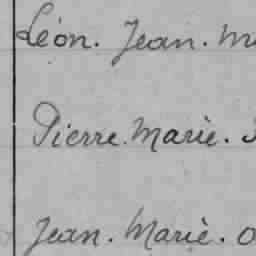 Léon. Jean. M
Pierre. Marie.
Jean. Marie.